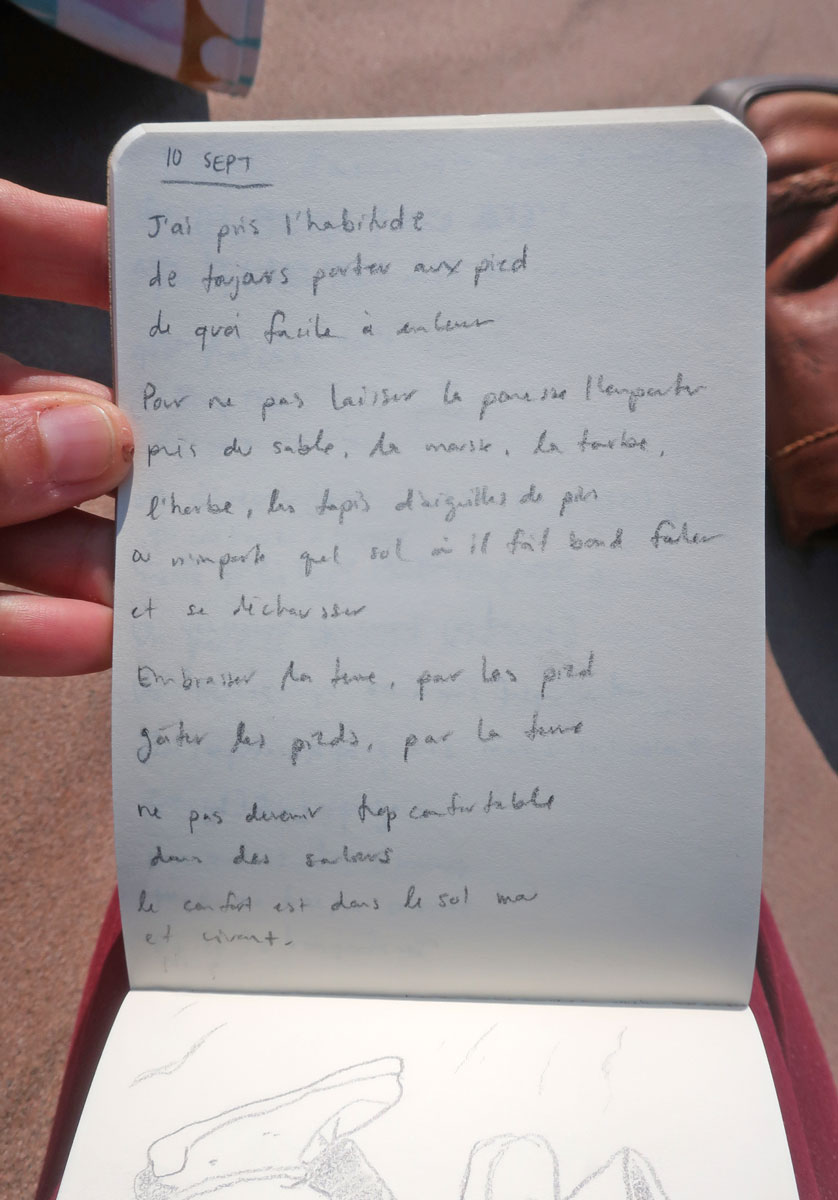 10 SEPT
J'ai pris l'habitude
de toujours porter aux pied
de quoi facile à enlever
Pour ne pas laisser la paresse l'emporter
près du sable, la mousse, la tourbe,
l'herbe, les tapis d'aiguilles de pin
ou n'importe quel sol où il fait bond fouler
et se déchausser
Embrasser la terre, par les pied
gâter les pieds, par la terre
ne pas devenir trop confortable
dans des
le confort est dans le sol
et vivant.